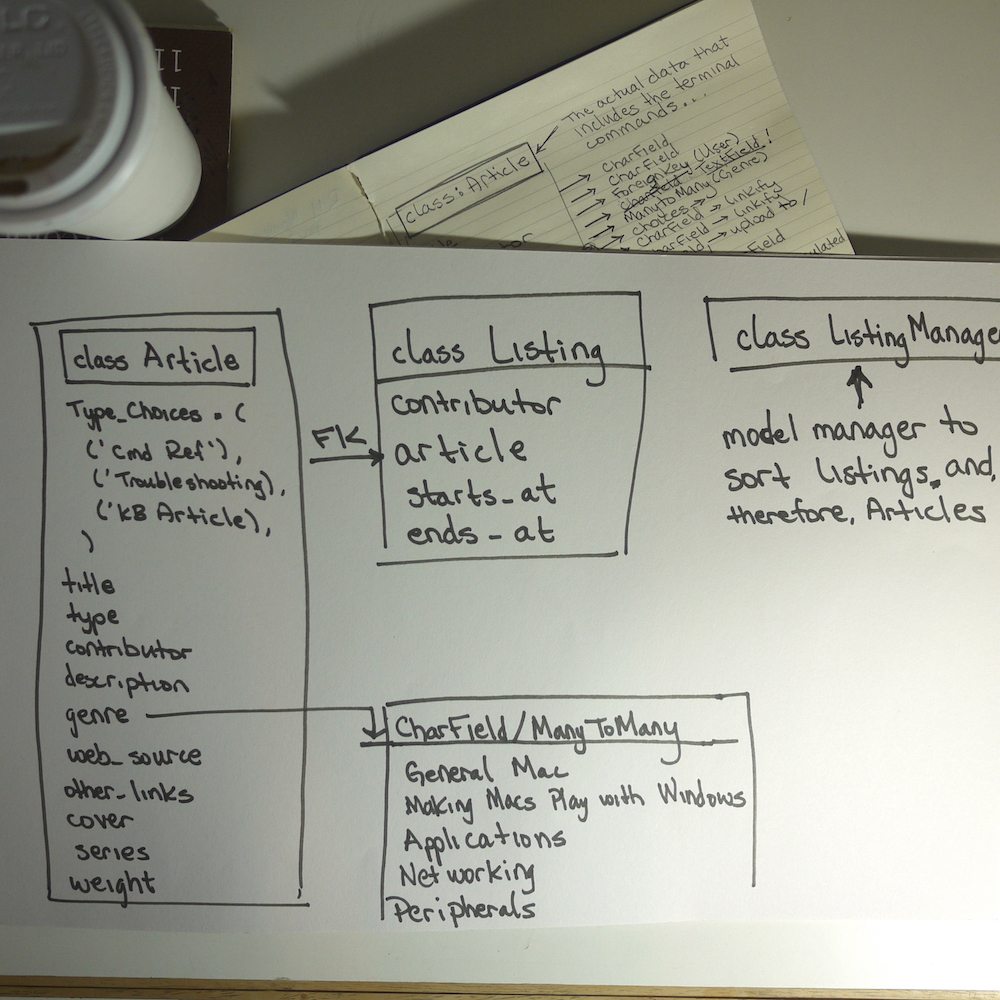 The actual data that
includes the terminal
commands...
class: Article
CharField
CharField
ForeignKey (User)
CharField TextField!
ManyToMany (Genre)
choices →
CharField → linkify
CharField → linkify
→ upload to /
Field
class Article
Type_Choices = (
('Cmd Ref'),
('Troubleshooting),
('KB Article),
)
title
type
contributor
description
genre
web_source
other_links
cover
series
weight
FK
class Listing
contributor
article
starts_at
ends_at
class ListingManage
model manager to
sort Listings, and,
therefore, Articles
CharField/ManyToMany
General Mac
Making Macs Play with Windows
Applications
Networking
Peripherals